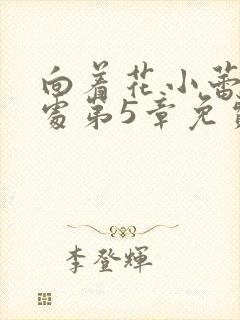 向着花小蕾
处第5章免费
李登辉